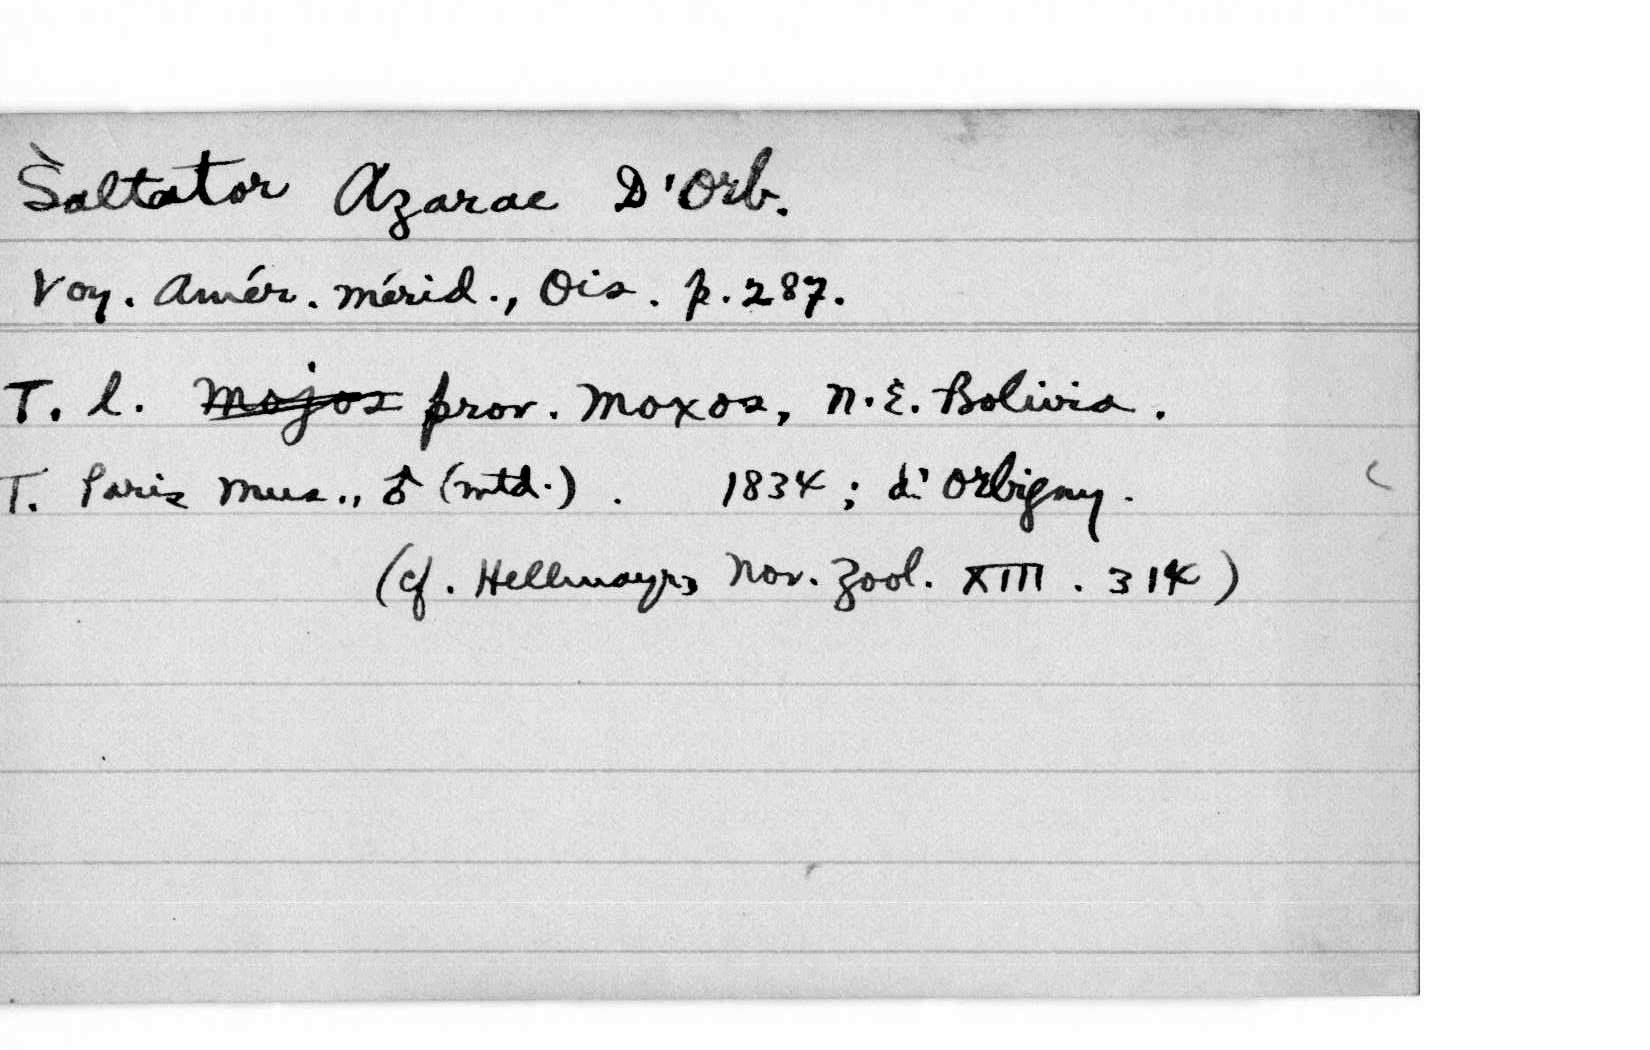 Saltator Azarae D'Orb.
Voy. Amér. mérid., Ois. p. 287.
T. l. Mojos prov. Moxos, N.E. Bolivia.
T. Paris Mus., ♂ (mtd.). 1834; d'Orbigny.
(cf. Hellmayr, Nov. Zool. XIII. 314)